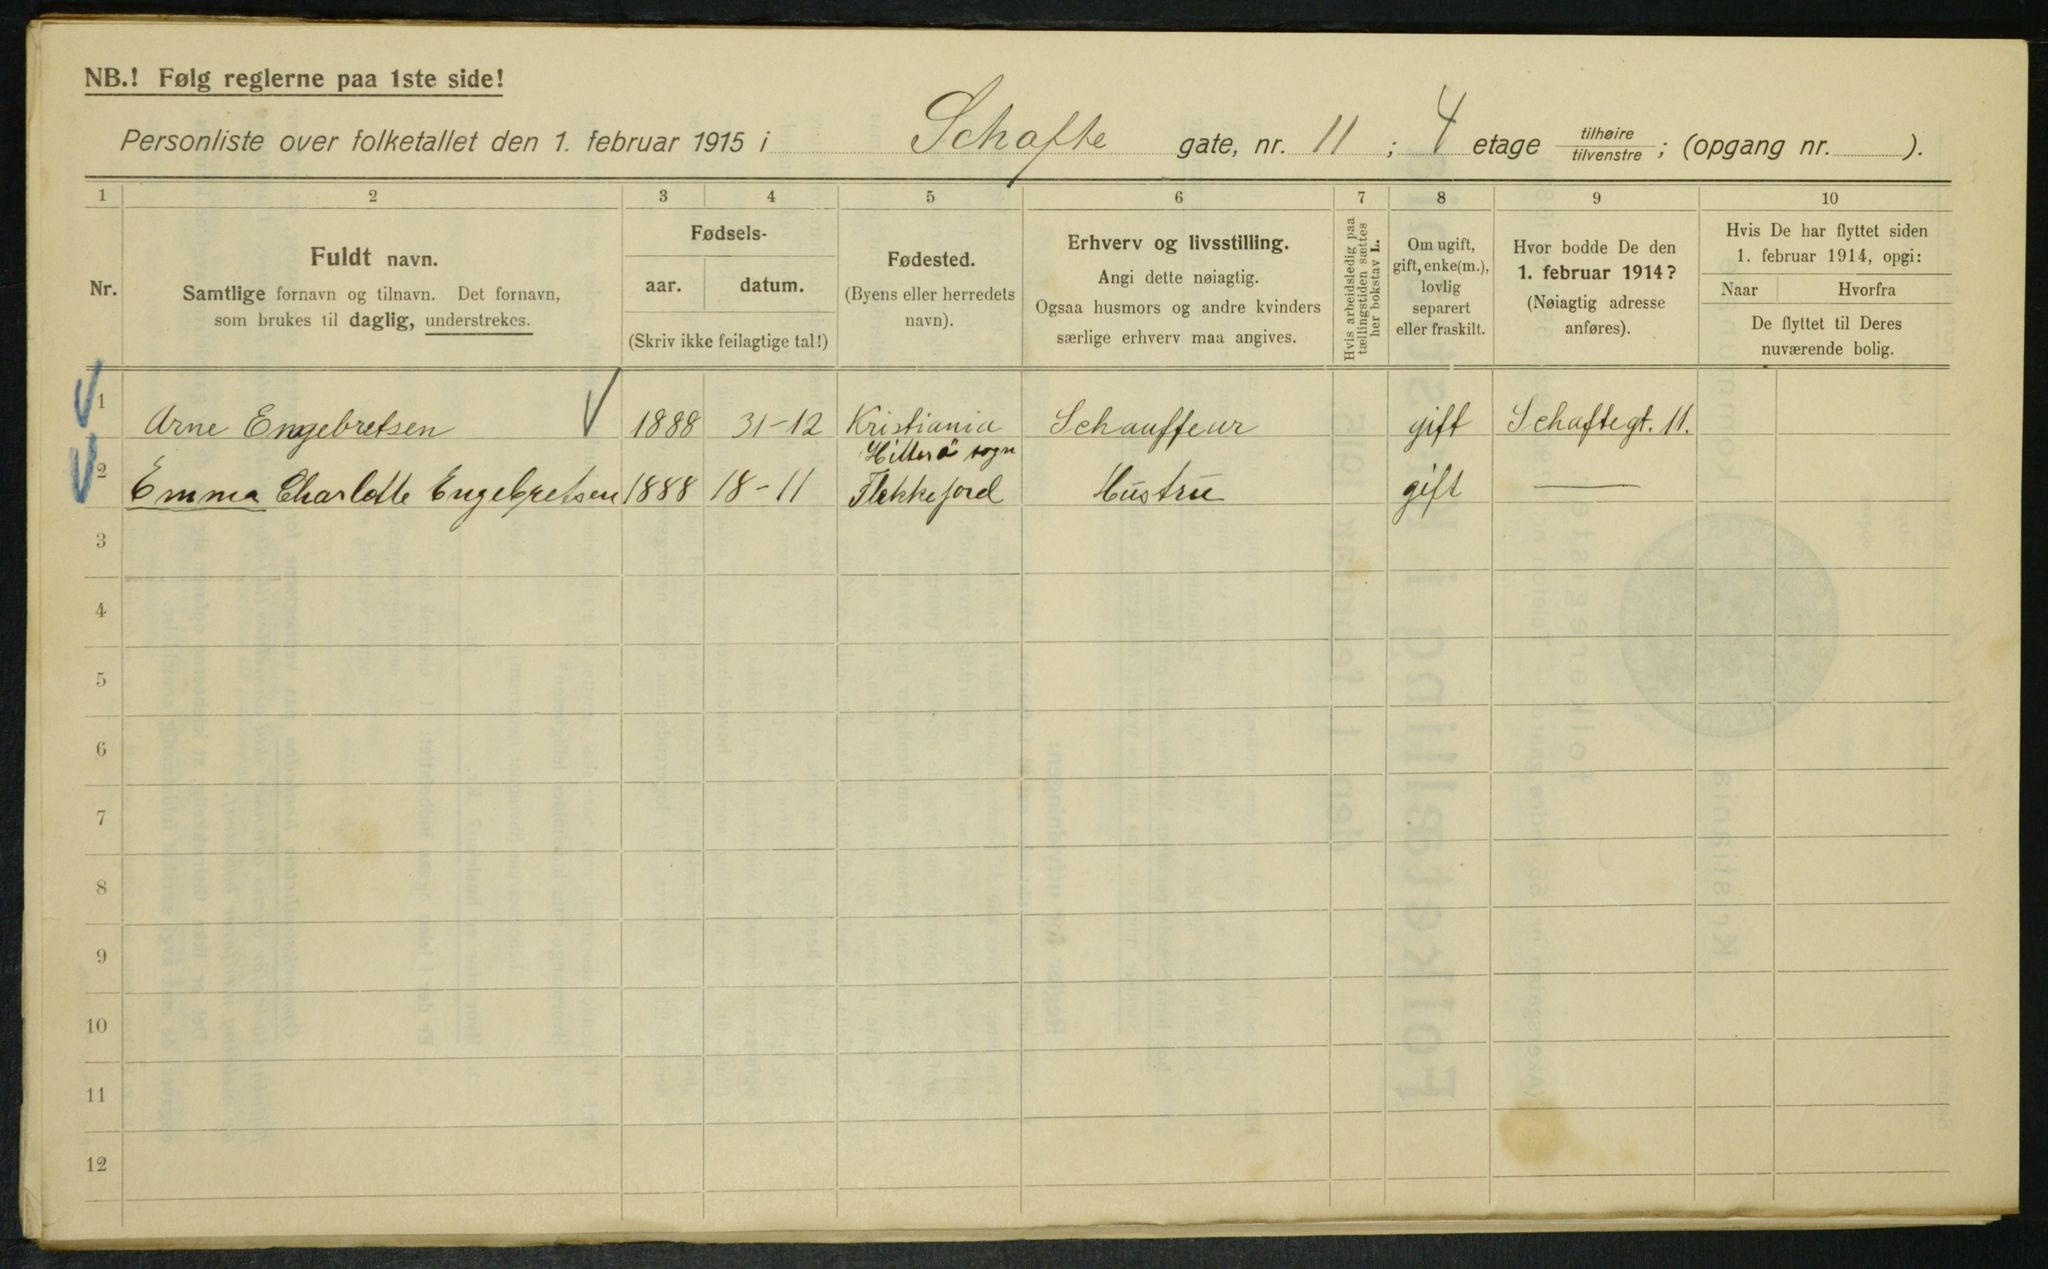 NB.! Følg reglerne paa 1ste side!
Personliste over folketallet den 1. februar 1915 i Schafte gate, nr. 11 ; 4 etage tilhøire/tilvenstre ; (opgang nr. ).
1 2 3 4 5 6 7 8 9 10
Nr.
Fuldt navn.
Samtlige fornavn og tilnavn. Det fornavn,
som brukes til daglig, understrekes.
Fødsels-
aar. datum.
(Skriv ikke feilagtige tal!)
Fødested.
(Byens eller herredets
navn).
Erhverv og livsstilling.
Angi dette nøiagtig.
Ogsaa husmors og andre kvinders
særlige erhverv maa angives.
Hvis arbeidsledig paa
tællingstiden sættes
her bokstav L.
Om ugift,
gift, enke(m.),
lovlig
separert
eller fraskilt.
Hvor bodde De den
1. februar 1914?
(Nøiagtig adresse
anføres).
Hvis De har flyttet siden
1. februar 1914, opgi:
Naar Hvorfra
De flyttet til Deres
nuværende bolig.
1 Arne Engebretsen 1888 31-12 Kristiania Schauffeur gift Schaftegt. 11.
Hitterö sogn
2 Emma Charlotte Engebretsen 1888 18-11 Flekkefjord Hustru gift —
3
4
5
6
7
8
9
10
11
12